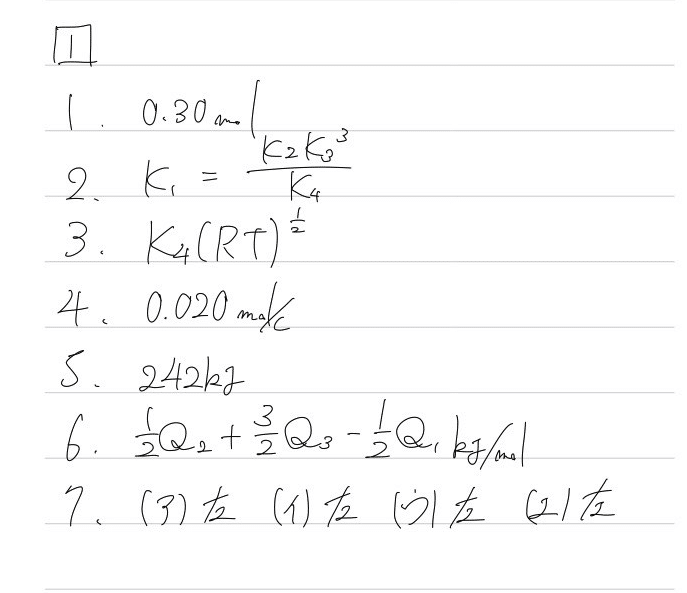 1
1. 0.30 mol
2. K₁ = K₂K₃³/K₄
3. K₄(RT)^½
4. 0.020 mol/L
5. 242kJ
6. ½Q₂ + 3/2 Q₃ - ½Q₁ kJ/mol
7. (ア) 左 (イ) 左 (ウ) 左 (エ) 左